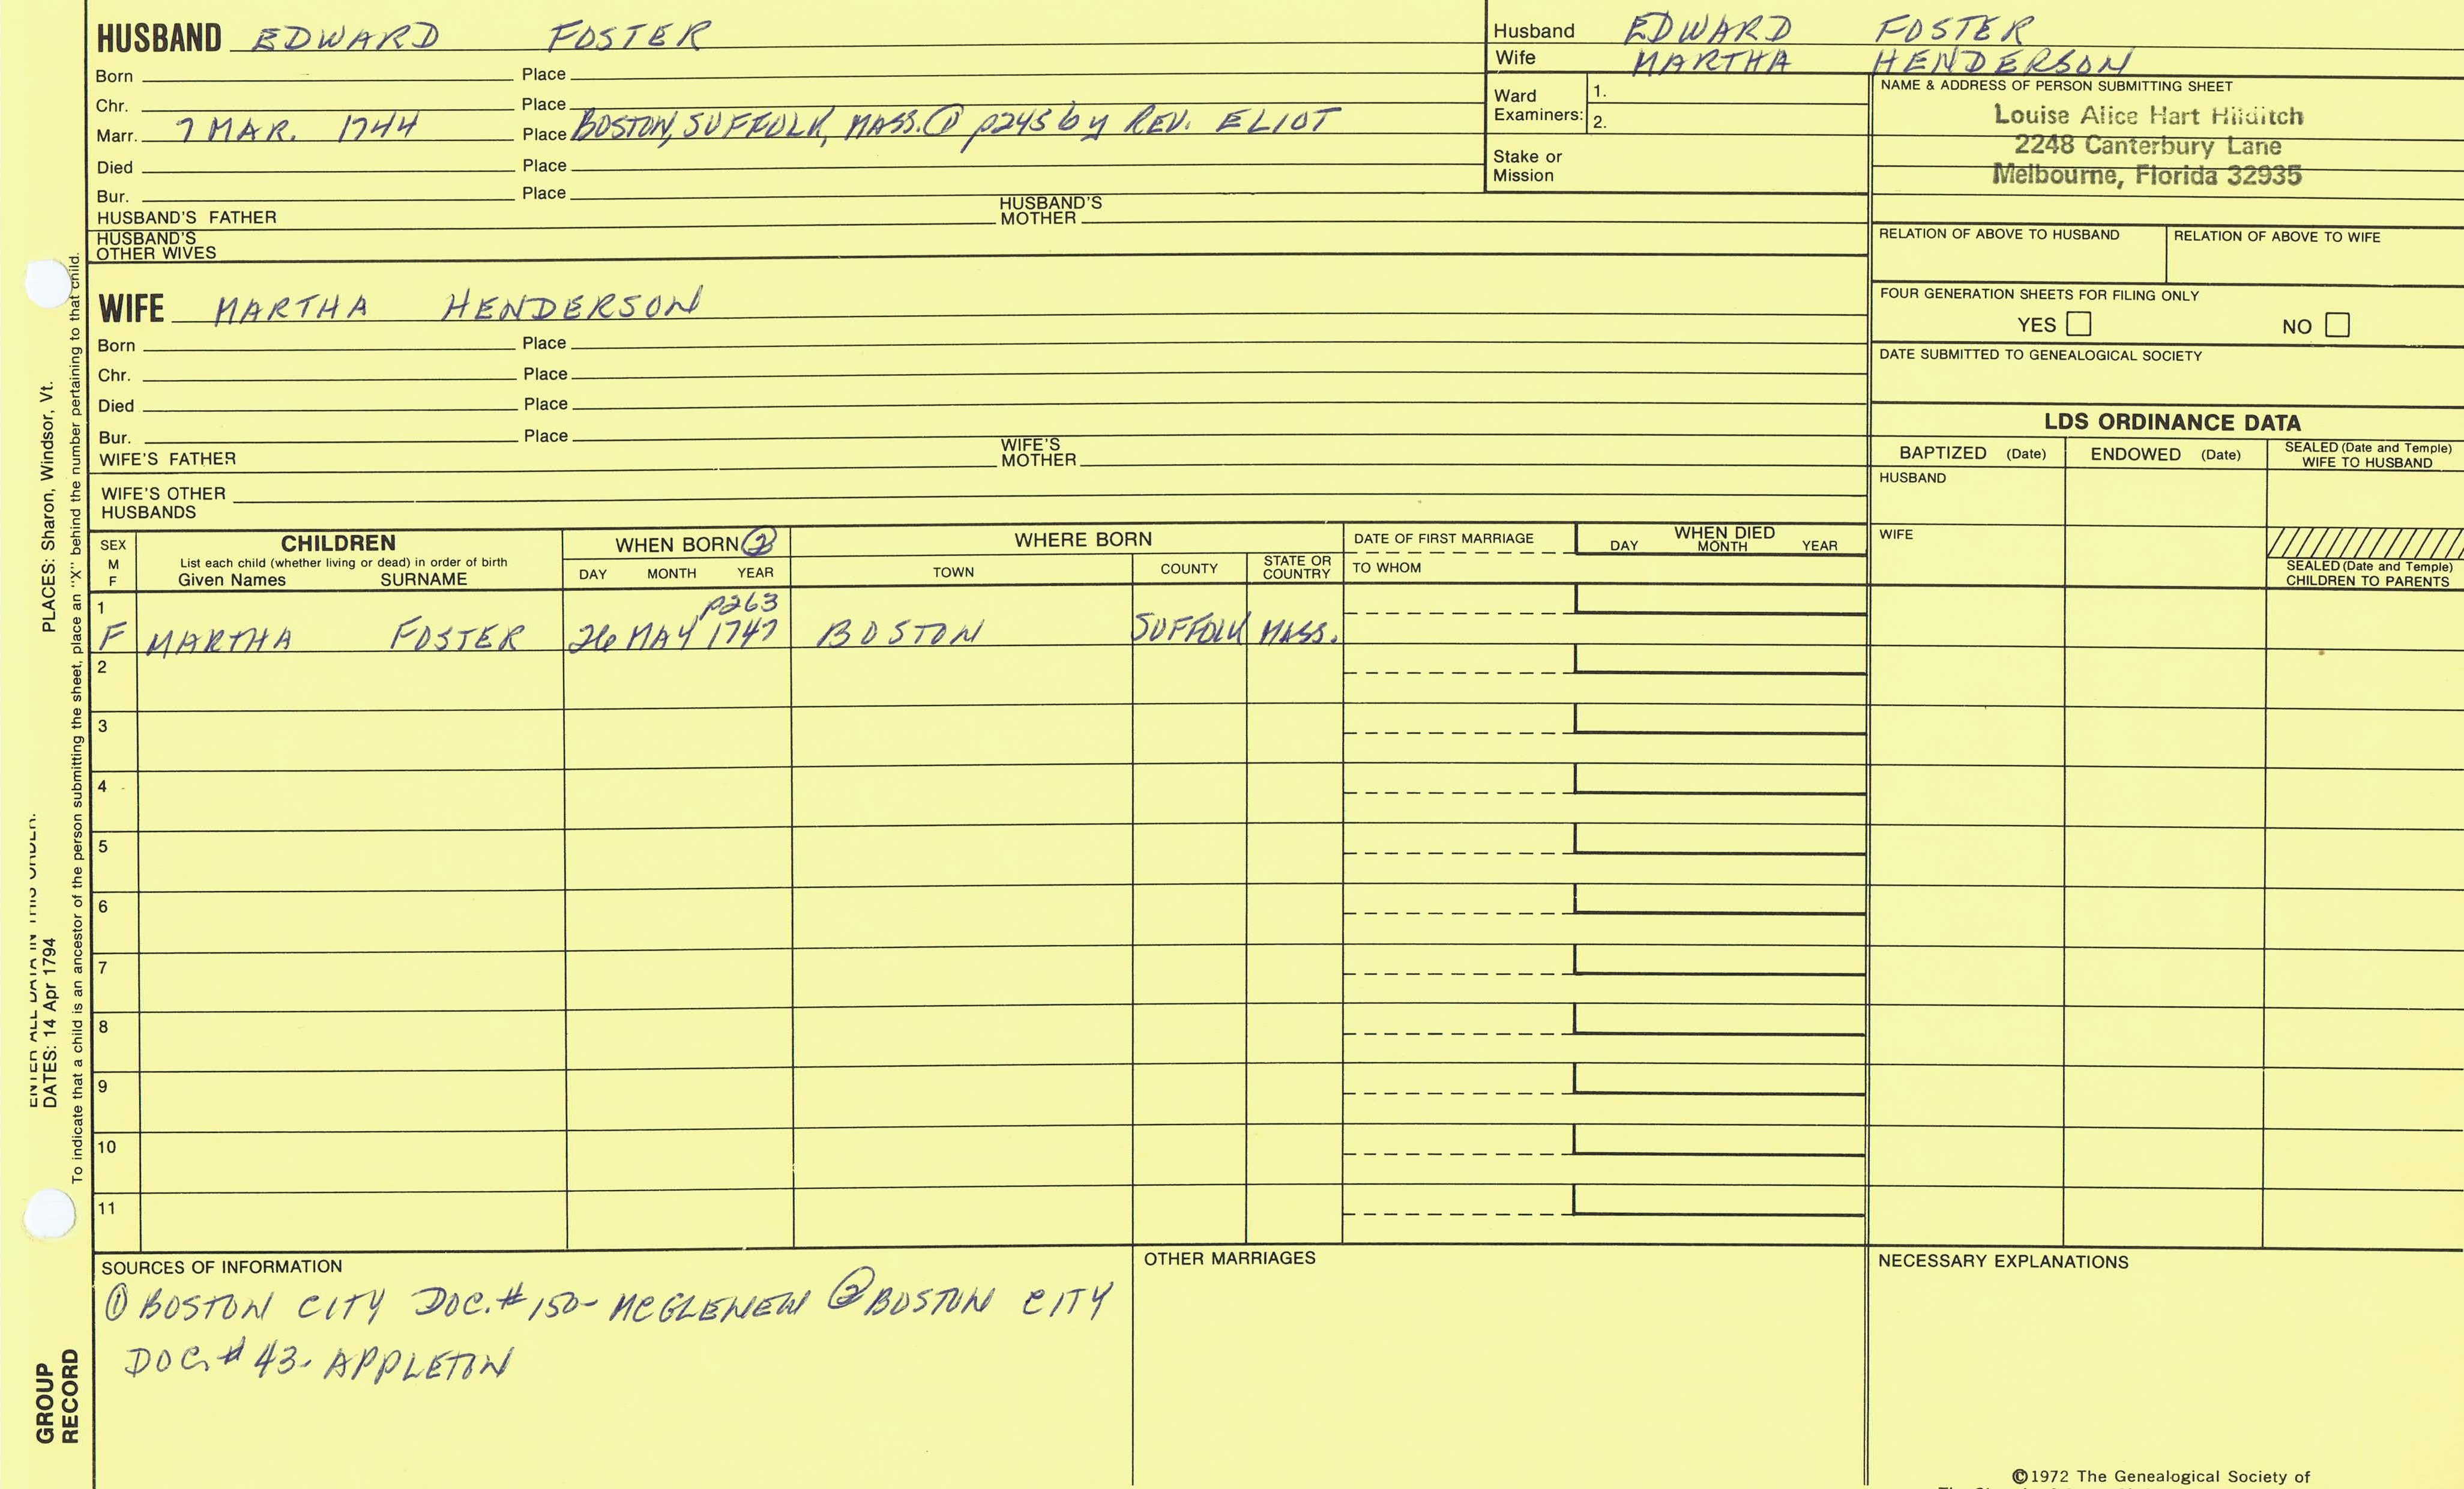 HUSBAND EDWARD FOSTER
Born Place
Chr. Place
Marr. 7 MAR. 1744 Place BOSTON, SUFFOLK, MASS. ① p245 by REV. ELIOT
Died Place
Bur. Place
HUSBAND'S FATHER HUSBAND'S MOTHER
HUSBAND'S
OTHER WIVES
Husband EDWARD FOSTER
Wife MARTHA HENDERSON
Ward
Examiners: 1.
2.
Stake or
Mission
NAME & ADDRESS OF PERSON SUBMITTING SHEET
Louise Alice Hart Hilditch
2248 Canterbury Lane
Melbourne, Florida 32935
RELATION OF ABOVE TO HUSBAND RELATION OF ABOVE TO WIFE
FOUR GENERATION SHEETS FOR FILING ONLY
YES NO
DATE SUBMITTED TO GENEALOGICAL SOCIETY
WIFE MARTHA HENDERSON
Born Place
Chr. Place
Died Place
Bur. Place
WIFE'S FATHER WIFE'S MOTHER
WIFE'S OTHER
HUSBANDS
LDS ORDINANCE DATA
BAPTIZED (Date) ENDOWED (Date) SEALED (Date and Temple)
WIFE TO HUSBAND
HUSBAND
WIFE
SEALED (Date and Temple)
CHILDREN TO PARENTS
SEX
M
F
CHILDREN
List each child (whether living or dead) in order of birth
Given Names SURNAME
WHEN BORN ②
DAY MONTH YEAR
WHERE BORN
TOWN COUNTY STATE OR
COUNTRY
DATE OF FIRST MARRIAGE
TO WHOM
WHEN DIED
DAY MONTH YEAR
1 p263
F MARTHA FOSTER 26 MAY 1747 BOSTON SUFFOLK MASS.
2
3
4
5
6
7
8
9
10
11
SOURCES OF INFORMATION
① BOSTON CITY DOC. # 150- MCGLENEN ② BOSTON CITY
DOC. # 43- APPLETON
OTHER MARRIAGES
NECESSARY EXPLANATIONS
©1972 The Genealogical Society of
ENTER ALL DATA IN THIS ORDER:
DATES: 14 Apr 1794 PLACES: Sharon, Windsor, Vt.
To indicate that a child is an ancestor of the person submitting the sheet, place an "X" behind the number pertaining to that child.
GROUP
RECORD